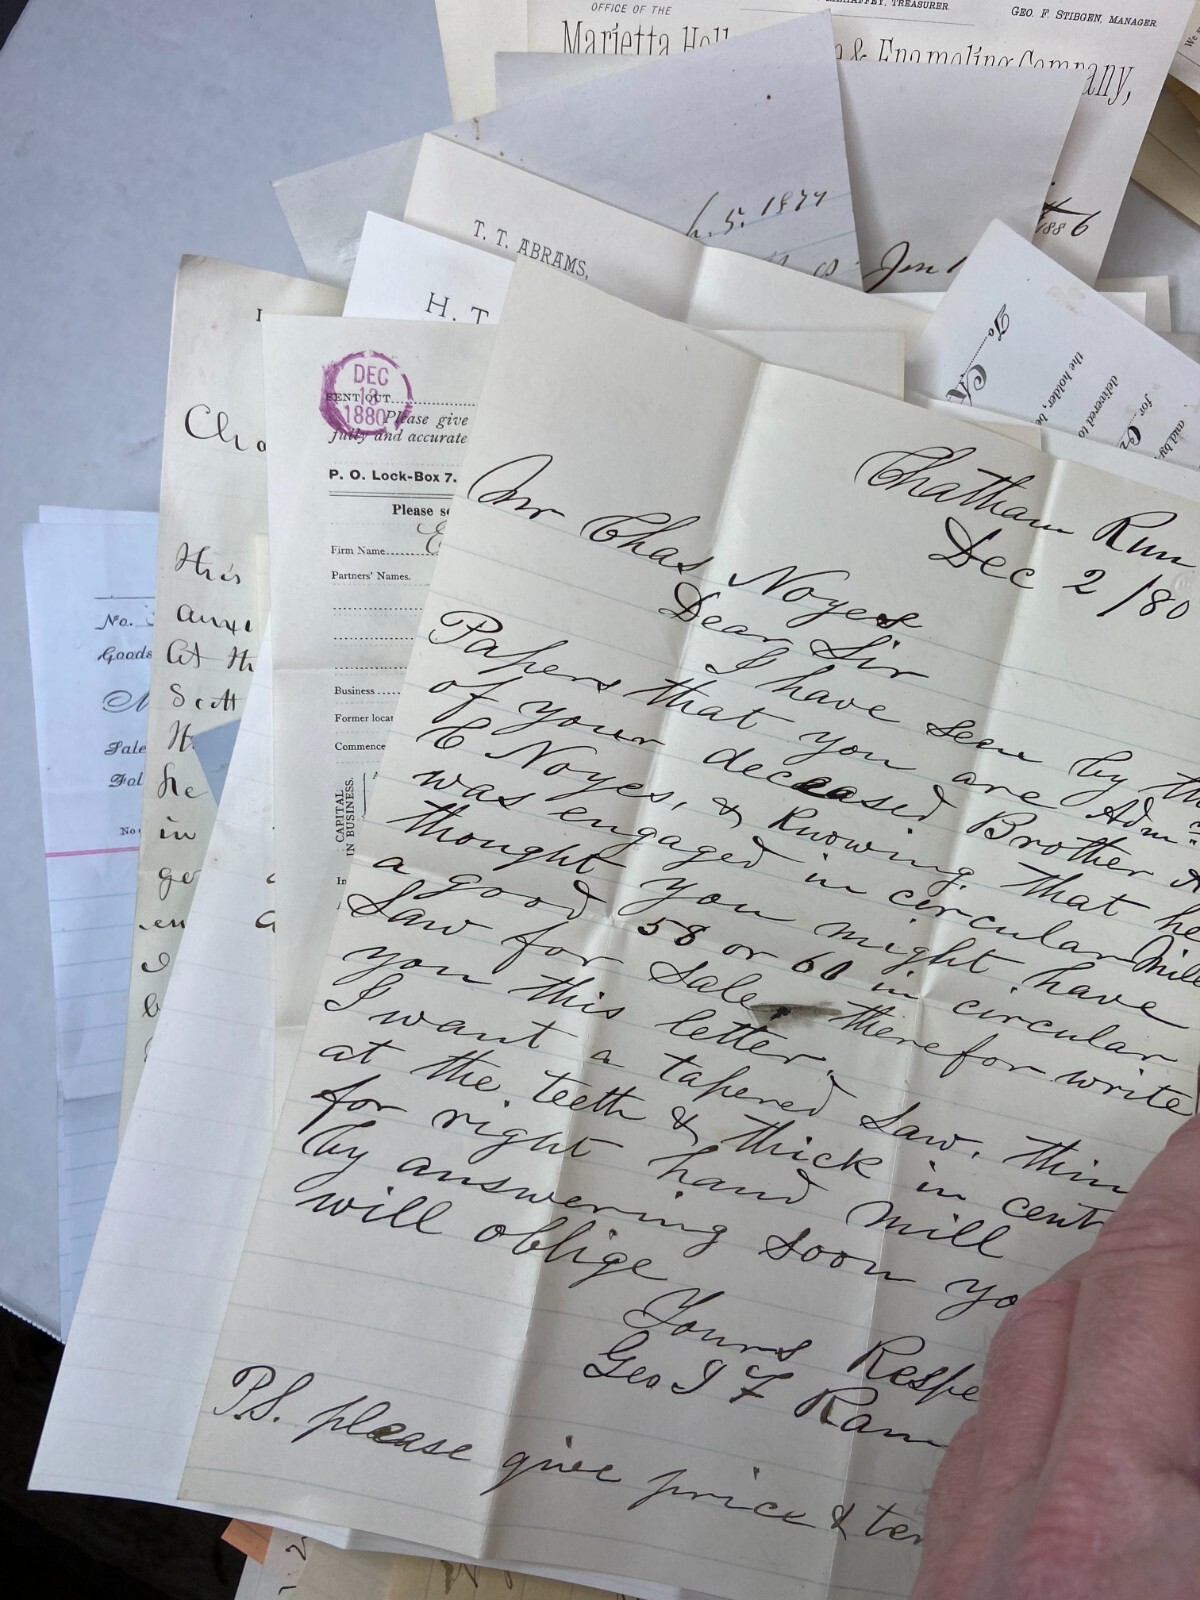 OFFICE OF THE
TREASURER
GEO. F. STIBGEN, MANAGER.
Marietta & Enameling Company,
5. 1879
1886
T. T. ABRAMS,
H. T
To
the holder,
delivered to
for
DEC
13
1880
SENT OUT
Please give
fully and accurate
P. O. Lock-Box 7.
Please
Firm Name
Partners' Names.
Business
Former
Commence
CAPITAL
IN BUSINESS.
No.
Goods
Sale
Fol
His
At
Scott
he
in
Chatham Run
Dec 2 /80
Mr Chas Noyes
Dear Sir
I have seen by the
Papers that you are Adm.
of your deceased Brother A
C Noyes, & Knowing that he
was engaged in circular Mill
thought you might have
a good 58 or 60 in circular
Saw for Sale therefor write
you this letter.
I want a tapered Saw, thin
at the teeth & thick in cent
for right hand Mill
by answering soon yo
will oblige
Yours Respe
Geo I F Ram
P.S. please give price & ter